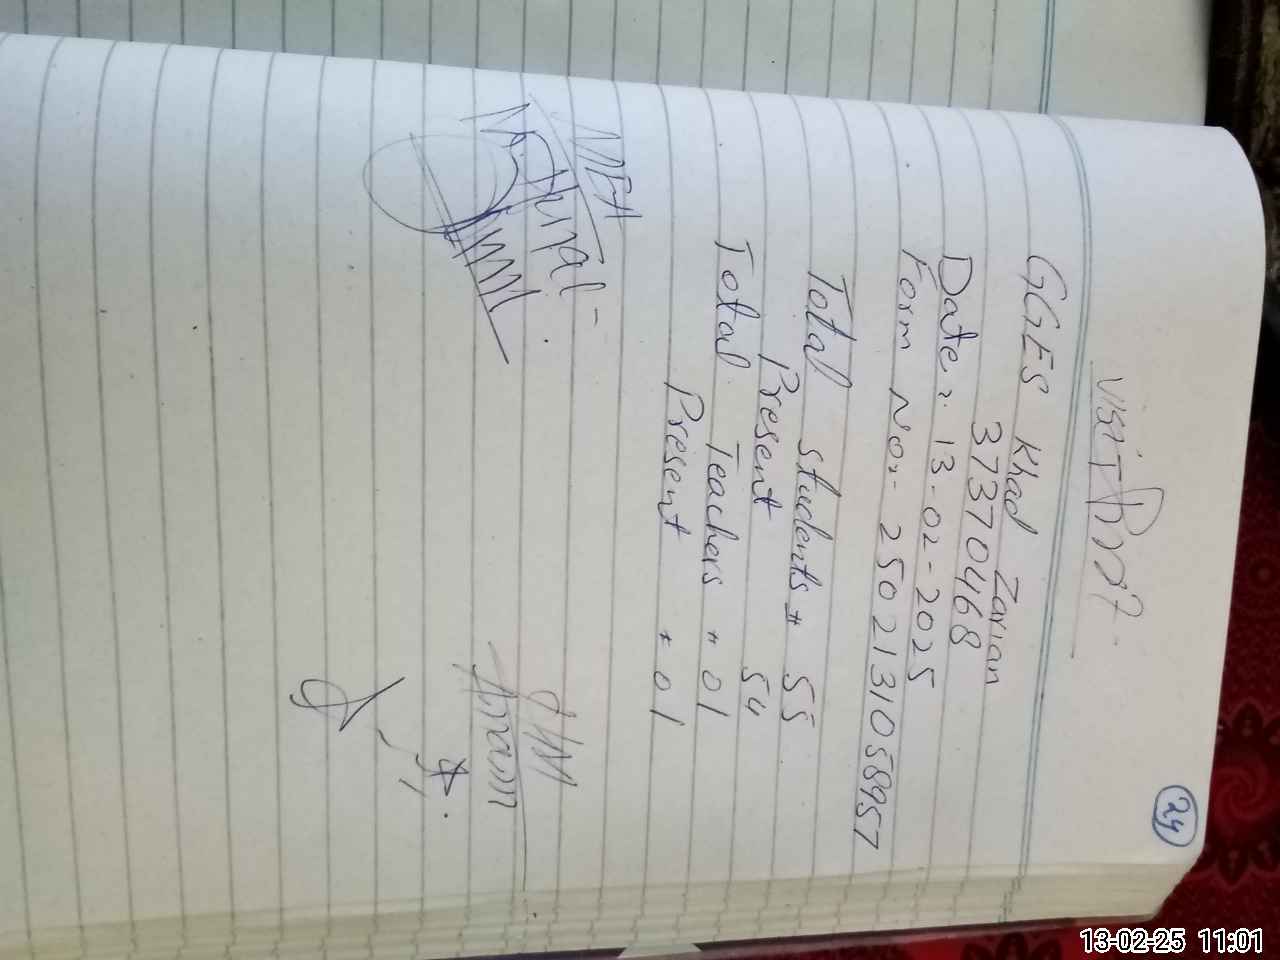 24
GGES Khad Zarian
37370468
Date :. 13-02-2025
Form No:- 2502131058957
Total students = 55
Present 54
Total Teachers = 01
Present = 01
13-02-25 11:01